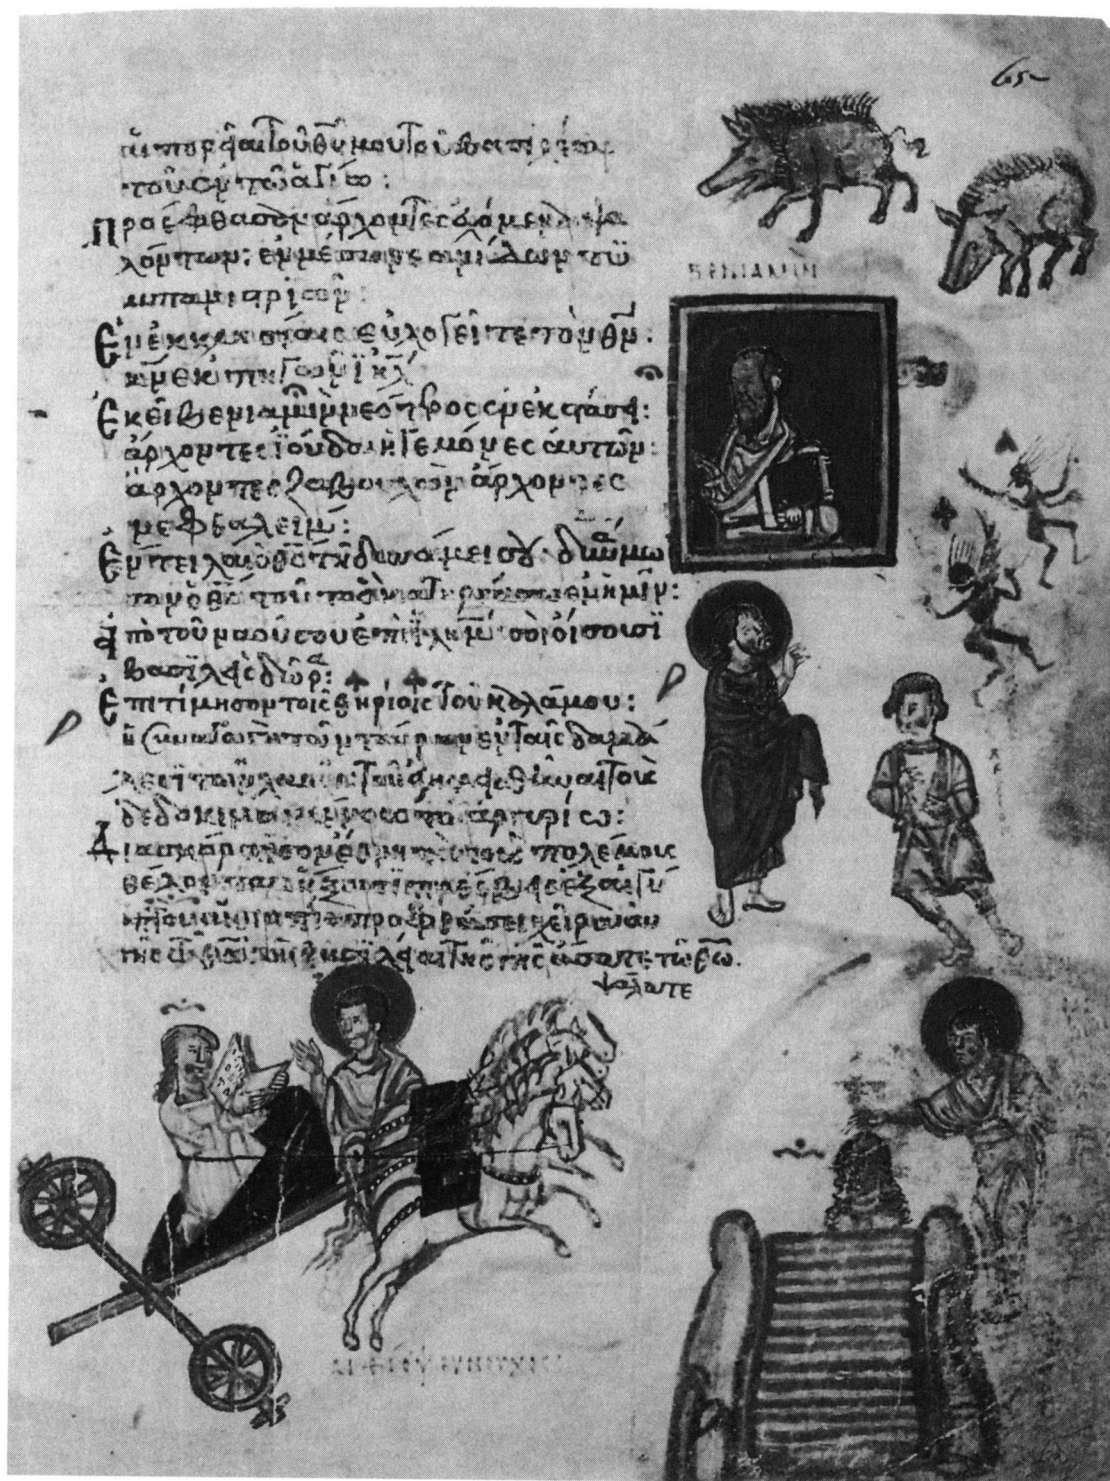 65
αἱ πορεῖαι τοῦ θῡ μου τοῦ βασιλέως
τοῦ ἐν τῶ ἁγίω:
Προέφθασαν ἄρχοντες ἐχόμενοι ψα
λόντων· ἐν μέσω νεανίδων τυ
μπανιστριῶν:
Ἐν ἐκκλησίαις εὐλογεῖτε τὸν θν̄:
κν̄ ἐκ πηγῶν ιηλ̄
ΒΕΝΙΑΜΙΝ
Ἐκεῖ βενιαμὶν νεώτερος ἐν ἐκστάσει:
ἄρχοντες ἰούδα ἡγεμόνες αὐτῶν:
ἄρχοντες ζαβουλὼν ἄρχοντες
νεφθαλείμ:
Ἔντειλαι ὁ θς̄ τῆ δυνάμει σου· δυνάμω
σον ὁ θς̄ τοῦτο ὃ κατηρτίσω ἐν ἡμῖν:
ἀπὸ τοῦ ναοῦ σου ἐπὶ ιλημ̄ σοὶ οἴσουσι
βασιλεῖς δῶρα:
Ἐπιτίμησον τοῖς θηρίοις τοῦ καλάμου:
ἡ συναγωγὴ τῶν ταύρων ἐν ταῖς δαμά
λεσι τῶν λαῶν τοῦ μὴ ἀποκλεισθῆναι τοὺς
δεδοκιμασμένους τῶ ἀργυρίω:
Διασκόρπισον ἔθνη τὰ τοὺς πολέμους
θέλοντα· ἥξουσι πρέσβεις ἐξ αἰγύ
πτου αἰθιοπία προφθάσει χεῖρα αὐ
τῆς τῶ θω̄ αἱ βασιλεῖαι τῆς γῆς ἄσατε τῶ θω̄.
ψάλατε
ΕΥΝΟΥΧΟΣ